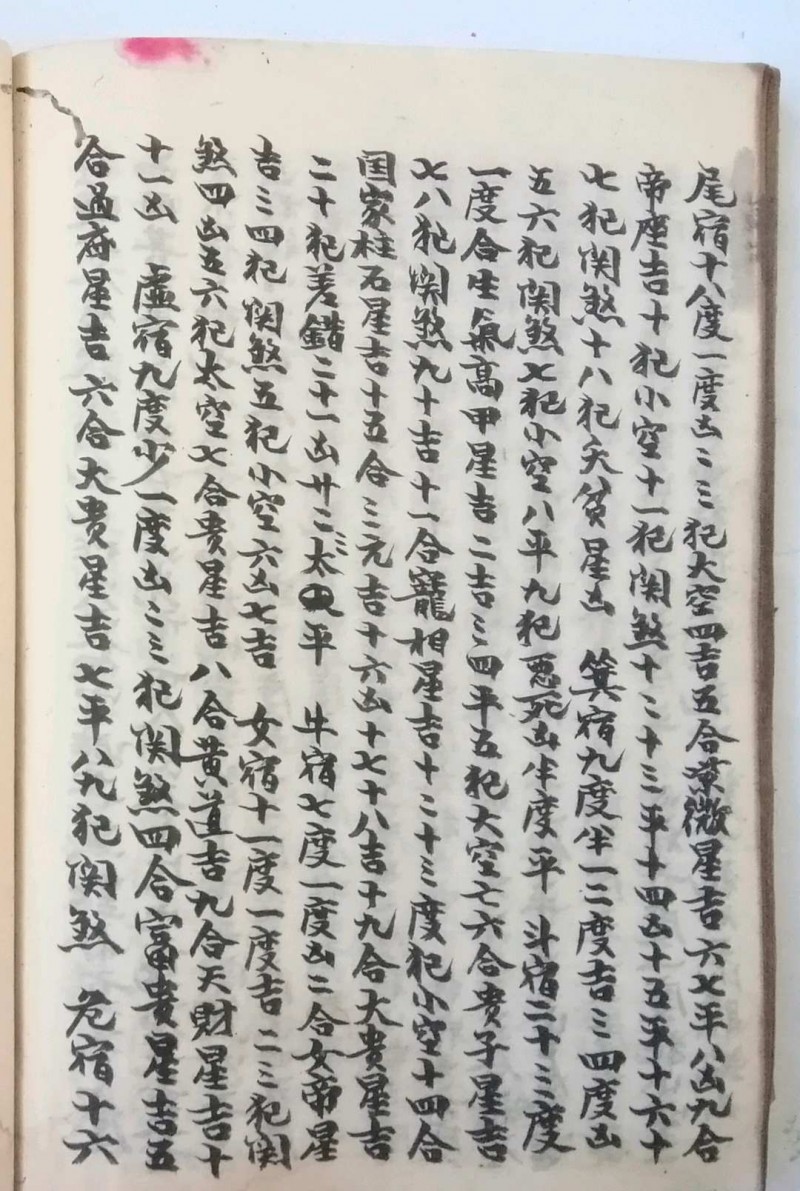 尾宿十八度一度凶二三犯大空四吉五合紫微星吉六七平八凶九合
帝座吉十犯小空十一犯関煞十二十三平十四凶十五平十六十
七犯関煞十八犯天貧星凶　箕宿九度半一二度吉三四度凶
五六犯関煞七犯小空八平九犯惡死凶半度平　斗宿二十三度
一度合生氣高甲星吉二吉三四平五犯大空六合貴子星吉
七八犯関煞九十吉十一合寵相星吉十二十三度犯小空十四合
国家柱石星吉十五合三元吉十六凶十七十八吉十九合大貴星吉
二十犯差錯二十一凶廿二太平　牛宿七度一度凶二合女帝星
吉三四犯関煞五犯小空六凶七吉　女宿十一度一度吉二三犯関
煞四凶五六犯太空七合貴星吉八合黄道吉九合天財星吉十
十一凶　虛宿九度少一度凶二三犯関煞四合富貴星吉五
合過府星吉六合大貴星吉七平八九犯関煞　危宿十六